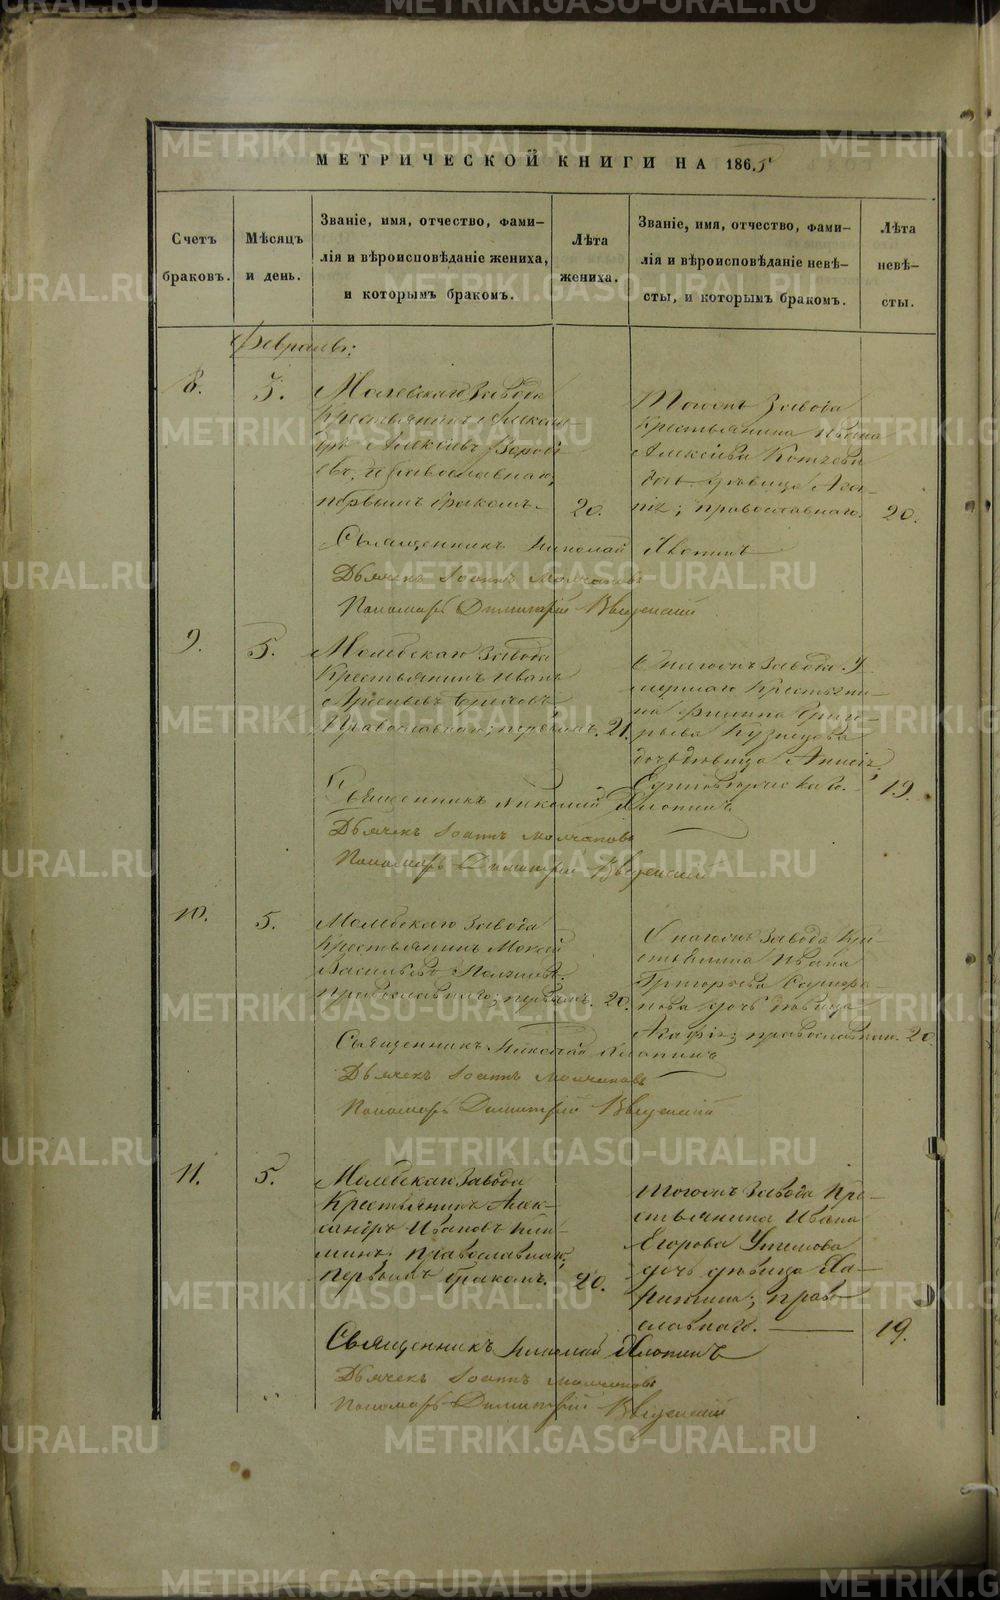 МЕТРИЧЕСКОЙ КНИГИ НА 1865
Счетъ браковъ.
Мѣсяцъ и день.
Званіе, имя, отчество, фами-
лія и вѣроисповѣданіе жениха,
и которымъ бракомъ.
Лѣта жениха.
Званіе, имя, отчество, фами-
лія и вѣроисповѣданіе невѣ-
сты, и которымъ бракомъ.
Лѣта невѣ-
сты.
Февраль:
8.
5.
Молебскаго Завода
Крестьянинъ Алексан-
дръ Алексѣевъ
православнаго,
первымъ бракомъ.
20.
Тогожъ Завода
Крестьянина Ивана
Алексѣева
дочь дѣвица Ага-
пія; православнаго.
20.
Священникъ Николай Хлопинъ
Дьячекъ Іоаннъ Молчановъ
Пономарь Димитрій Введенскій
9.
5.
Молебскаго Завода
Крестьянинъ Иванъ
Арсеньевъ
Православнаго; первымъ.
21.
Онагожъ Завода У-
мершаго Крестьяни-
на Филиппа Григо-
рьева Кузнецова
дочь дѣвица Анисія;
Единовѣрческаго.
19.
Священникъ Николай Хлопинъ
Дьячекъ Іоаннъ Молчановъ
Пономарь Димитрій Введенскій
10.
5.
Молебскаго Завода
Крестьянинъ Мокей
Васильевъ
Православнаго; первымъ.
20.
Онагожъ Завода Кре-
стьянина Ивана
Григорьева
дочь дѣвица
Агафія; православнаго.
20.
Священникъ Николай Хлопинъ
Дьячекъ Іоаннъ Молчановъ
Пономарь Димитрій Введенскій
11.
5.
Молебскаго Завода
Крестьянинъ Алек-
сандръ Ивановъ
Православнаго,
первымъ бракомъ.
20.
Тогожъ Завода Кре-
стьянина Ивана
Егорова Утемова
дочь дѣвица Ха-
ритина; право-
славнаго.
19.
Священникъ Николай Хлопинъ
Дьячекъ Іоаннъ Молчановъ
Пономарь Димитрій Введенскій
METRIKI.GASO-URAL.RU